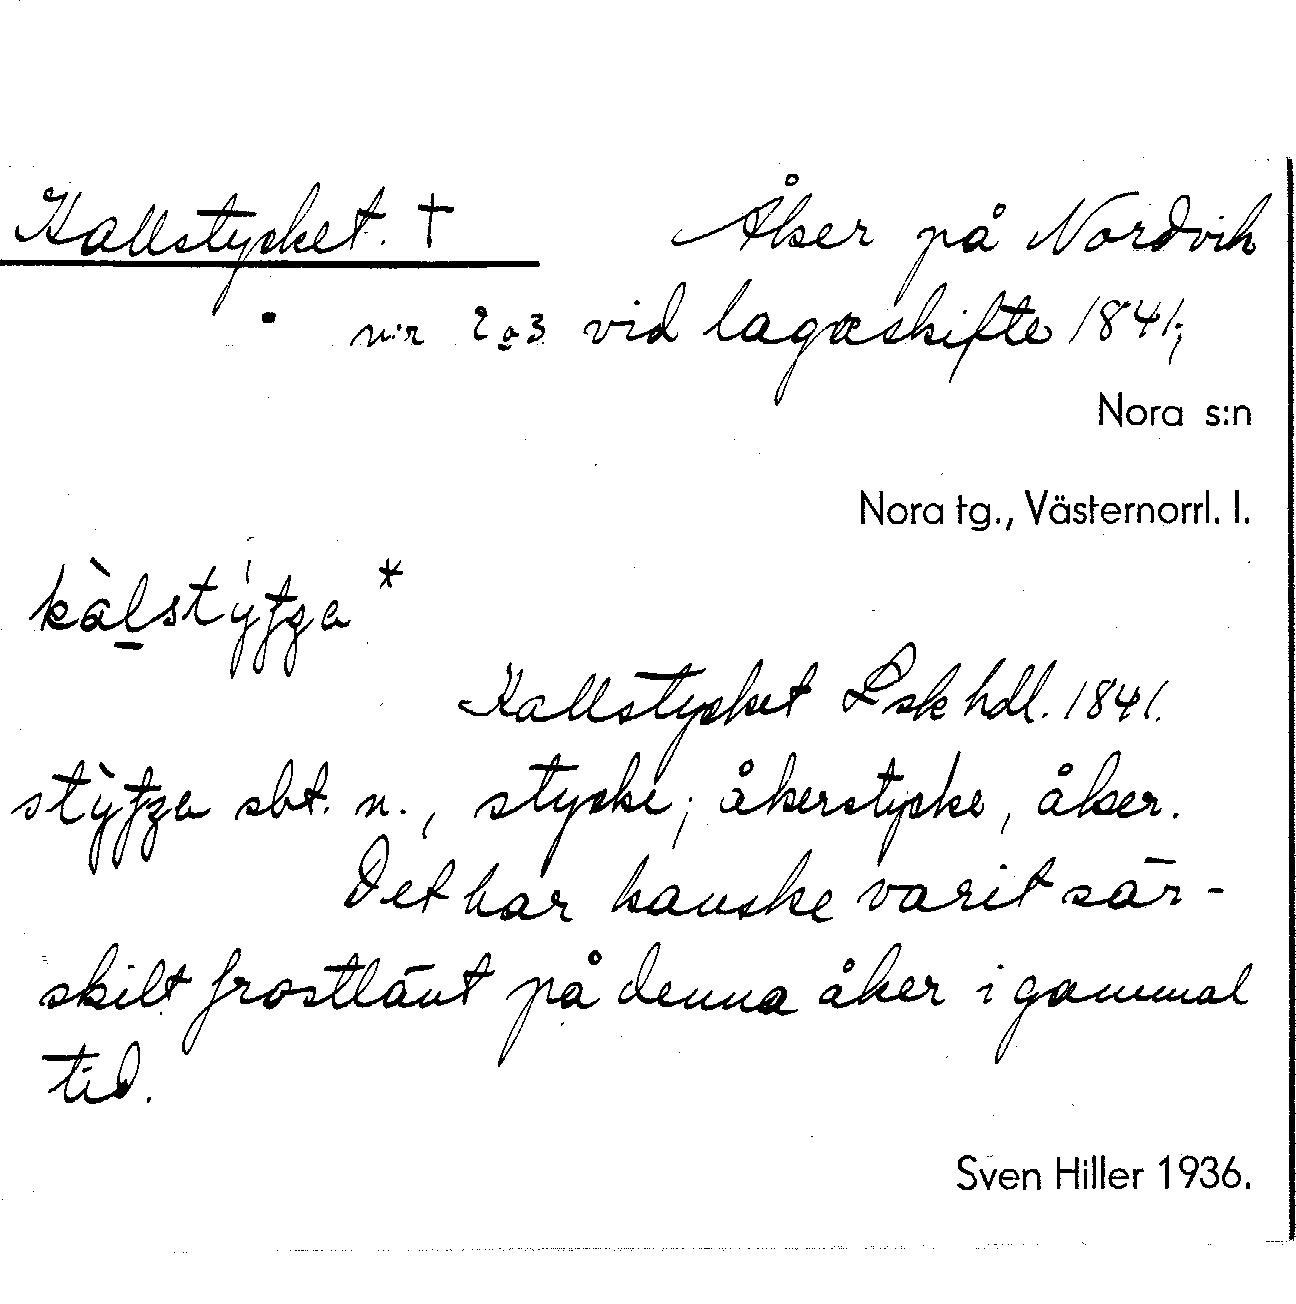 Kallstycket. † Åker på Nordvik
n:r 2 o 3 vid lagaskifte 1841;
Nora s:n
Nora tg., Västernorrl. l.
Kallstycket Lsk hdl. 1841.
sbt. n., stycke; åkerstycke, åker.
Det har kanske varit sär-
skilt frostlänt på denna åker i gammal
tid.
Sven Hiller 1936.